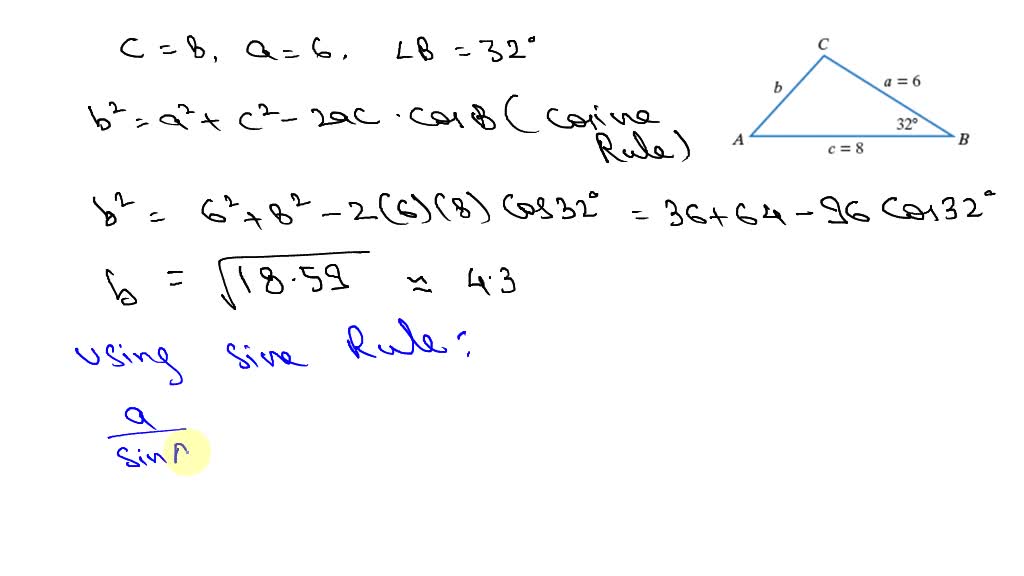 c = 8, a = 6, ∠B = 32°
b² = a² + c² - 2ac · cosB (cosine
Rule)
b² = 6² + 8² - 2(6)(8) Cos32° = 36 + 64 - 96 Cos32°
b = √18.59 ≈ 4.3
using sine Rule:
a
sin A
C
b
a = 6
32°
A
B
c = 8